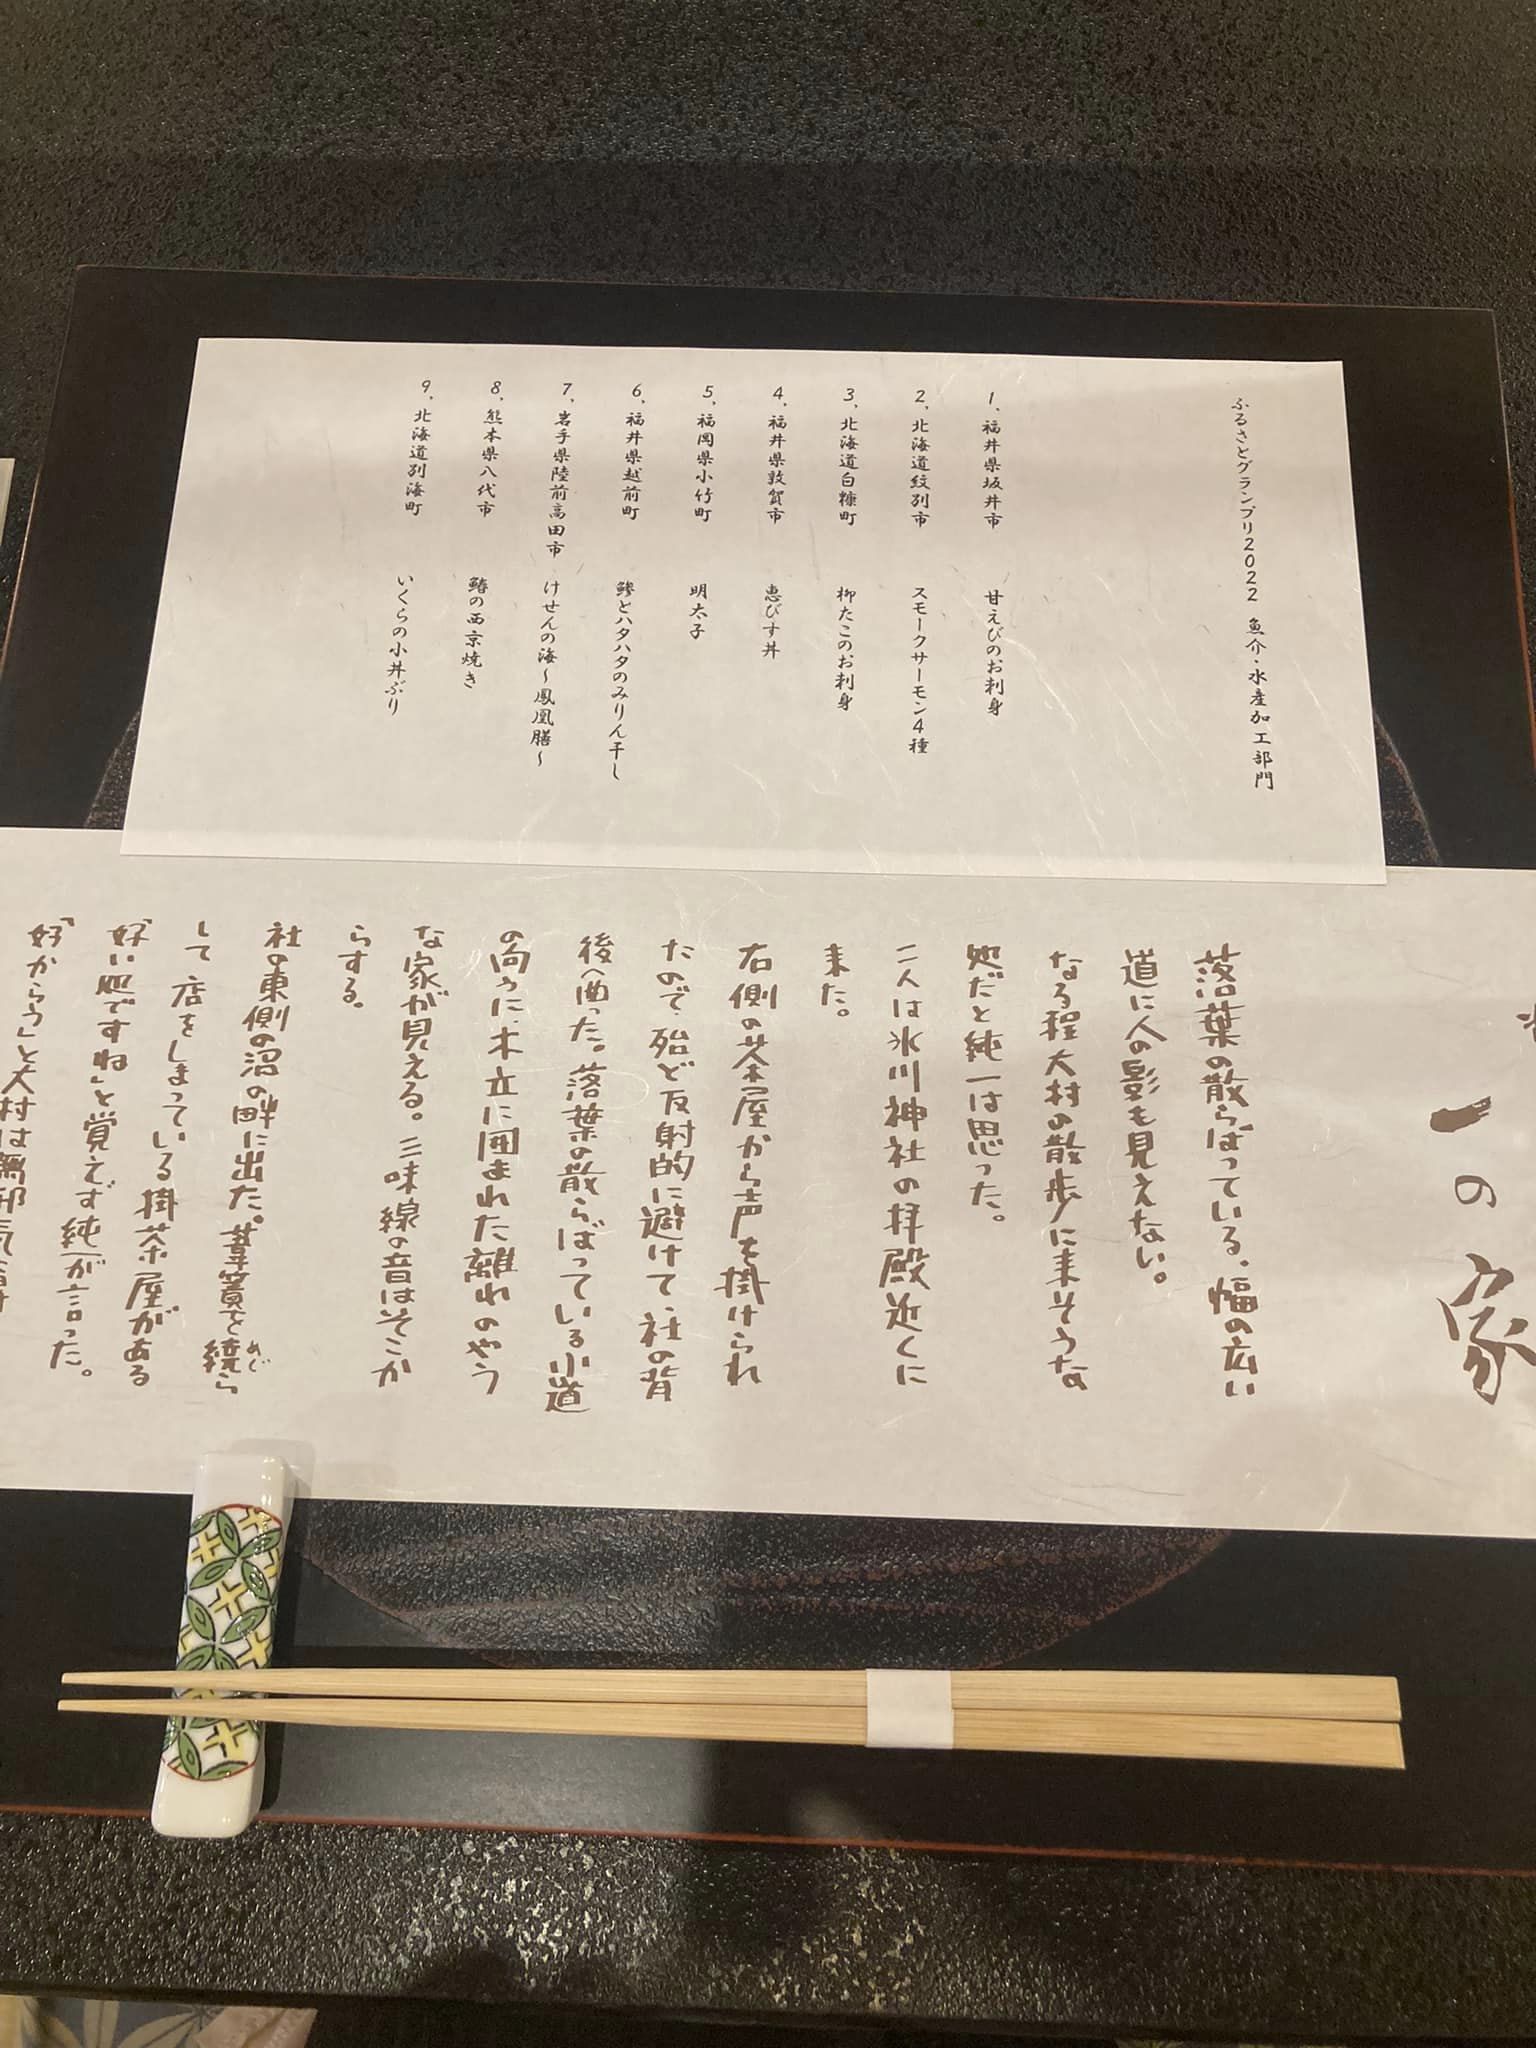 ふるさとグランプリ2022 魚介・水産加工部門
1、福井県坂井市 甘えびのお刺身
2、北海道紋別市 スモークサーモン4種
3、北海道白糠町 柳たこのお刺身
4、福井県敦賀市 恵びす丼
5、福岡県小竹町 明太子
6、福井県越前町 鰺とハタハタのみりん干し
7、岩手県陸前高田市 けせんの海～鳳凰膳～
8、熊本県八代市 鰆の西京焼き
9、北海道別海町 いくらの小丼ぶり
一の家
落葉の散らばっている、幅の広い
道に人の影も見えない。
なる程大村の散歩に来そうな
処だと純一は思った。
二人は氷川神社の拝殿近くに
来た。
右側の茶屋から声を掛けられ
たので、殆ど反射的に避けて、社の背
後へ曲った。落葉の散らばっている小道
の向うに、木立に囲まれた離れのやう
な家が見える。三味線の音はそこか
らする。
社の東側の沼の畔に出た。葦簀を繞ら
めぐ
して店をしまっている掛茶屋がある
「好い処ですね」と覚えず純一が言った。
「好からう」と大村は無邪気